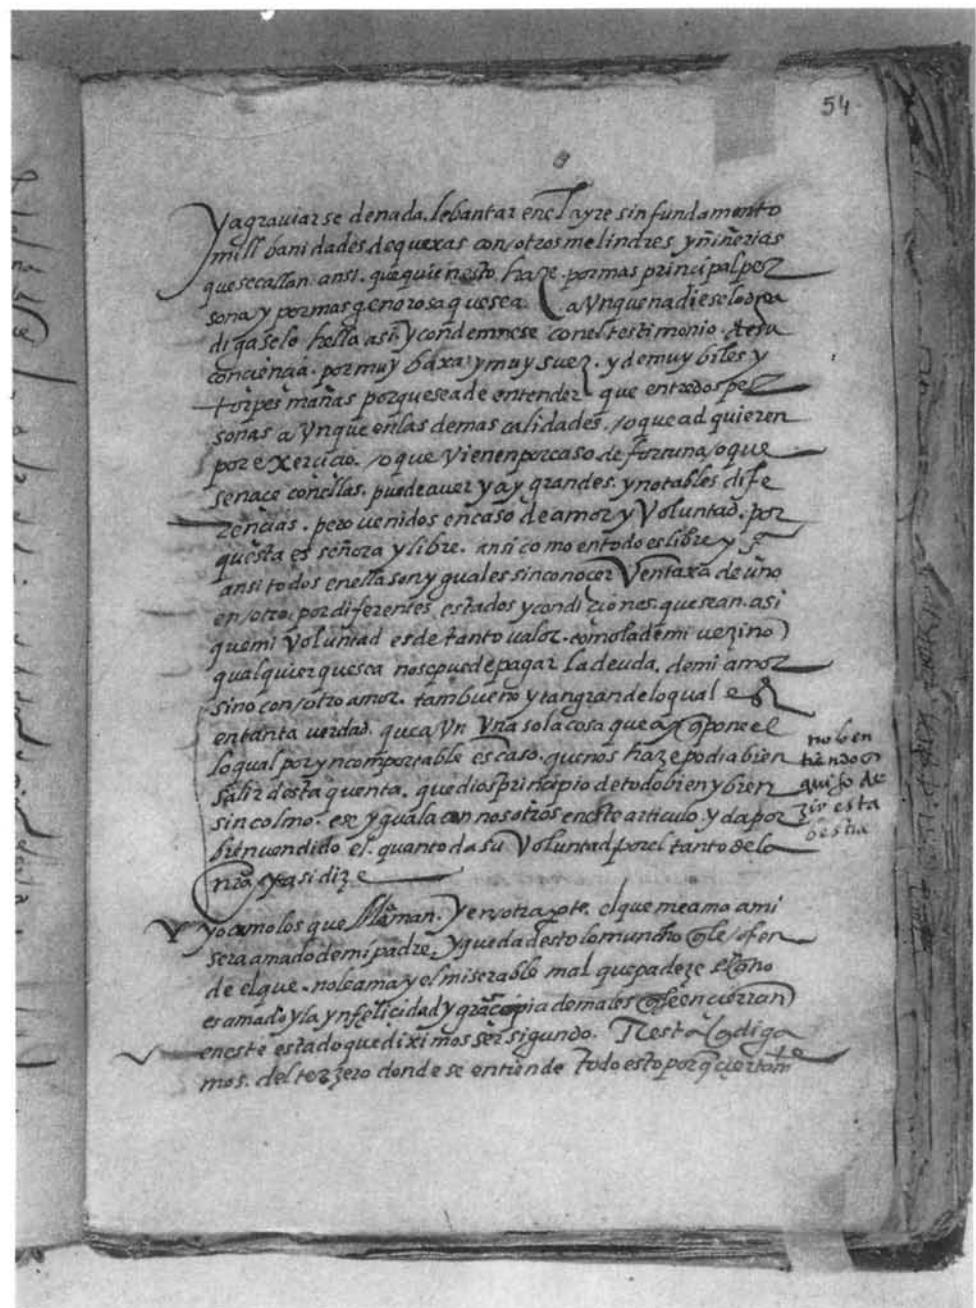 54
Yagraviar se de nada. lebantar enel ayre sin fundamento
mill banidades de quexas con otros melindres y niñerias
que se callan. ansi. que quien esto. haze. por mas principal per
sona y por mas generosa que sea. aunque nadie se lo
diga selo hella asi. y condemnese con el testimonio. de su
conciencia. por muy baxa y muy suez. y de muy biles y
torpes mañas porque sea de entender que entre dos per
sonas aunque en las demas calidades. o que adquieren
por exercicio. o que vienen por caso de fortuna o que
se nace con ellas. puede aver y ay grandes. y notables dife
rencias. pero venidos en caso de amor y Voluntad. por
questa es señora y libre. ansi como en todo es libre y
ansi todos en ella son yguales sin conocer Ventaxa de uno
en otro. por diferentes estados y condiziones. que sean. asi
que mi Voluntad es de tanto valor. como la de mi vezino
qualquier que sea no se puede pagar la deuda. de mi amor
sino con otro amor. tam bueno y tan grande lo qual es
en tanta verdad. que aun una sola cosa que
lo qual por yncomportable escaso. que nos haze podia bien
salir desta quenta. que dios principio de todo bien y bien
sin colmo. se yguala con nosotros en este articulo. y da por
bien vendido el. quanto da su Voluntad por el tanto de la
nra. y asi dize
yo amo los que me aman. y en otra pte. el que me amo a mi
sera amado de mi padre. y queda desto lo muncho qle ofen
de el que. no le ama y el miserable mal que padeze si no
es amado y la ynfelicidad y gran copia de males que se encierran
en este estado que diximos ser sigundo. Resta q digа
mos. del terzero donde se entiende todo esto porq ciertamte
no ben
tendo
quiso de
zir esta
bestia